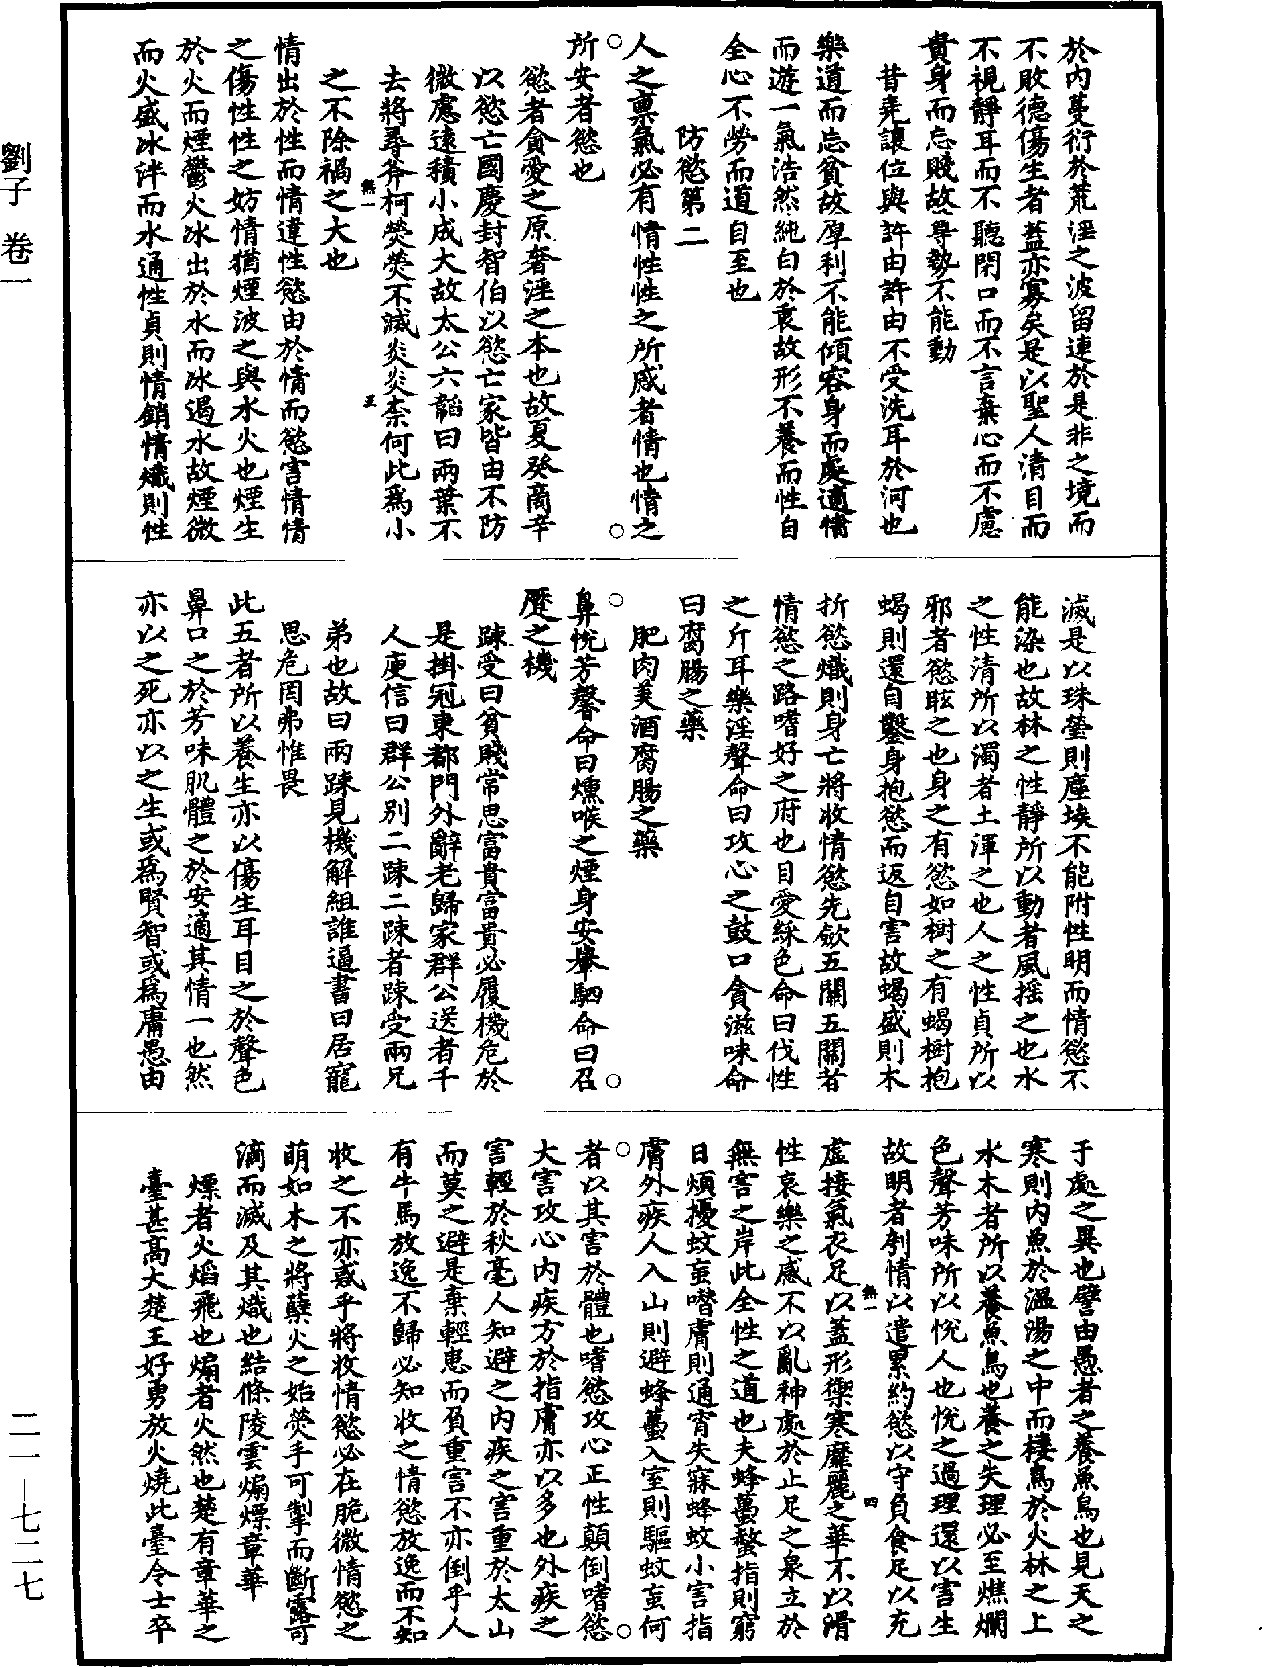 劉子　卷一
二一—七二七
於內蔓衍於荒淫之波留連於是非之境而
不敗德傷生者蓋亦寡矣是以聖人清目而
不視靜耳而不聽閉口而不言棄心而不慮
貴身而忘賤故尊勢不能動
昔堯讓位與許由許由不受洗耳於河也
樂道而忘貧故厚利不能傾容身而處適情
而遊一氣浩然純白於衷故形不養而性自
全心不勞而道自至也
防慾第二
人之稟氣必有情性性之所感者情也情之
所安者慾也
慾者貪愛之原奢淫之本也故夏癸商辛
以慾亡國慶封智伯以慾亡家皆由不防
微慮遠積小成大故太公六韜曰兩葉不
去將尋斧柯熒熒不滅炎炎柰何此爲小
無一
王
之不除禍之大也
情出於性而情違性慾由於情而慾害情情
之傷性性之妨情猶煙波之與水火也煙生
於火而煙鬱火冰出於水而冰遏水故煙微
而火盛冰泮而水通性貞則情銷情熾則性
滅是以珠瑩則塵埃不能附性明而情慾不
能染也故林之性靜所以動者風搖之也水
之性清所以濁者土渾之也人之性貞所以
邪者慾眩之也身之有慾如樹之有蝎樹抱
蝎則還自鑿身抱慾而返自害故蝎盛則木
折慾熾則身亡將收情慾先斂五關五關者
情慾之路嗜好之府也目愛綵色命曰伐性
之斤耳樂淫聲命曰攻心之鼓口貪滋味命
曰腐腸之藥
肥肉美酒腐腸之藥
鼻悅芳馨命曰燻喉之煙身安轝駟命曰召
蹷之機
踈受曰貧賤常思富貴富貴必履機危於
是掛冠東都門外辭老歸家群公送者千
人庾信曰群公別二踈二踈者踈受兩兄
弟也故曰兩踈見機解組誰逼書曰居寵
思危罔弗惟畏
此五者所以養生亦以傷生耳目之於聲色
鼻口之於芳味肌體之於安適其情一也然
亦以之死亦以之生或爲賢智或爲庸愚由
于處之異也譬由愚者之養魚鳥也見天之
寒則內魚於溫湯之中而棲鳥於火林之上
水木者所以養魚鳥也養之失理必至燋爛
色聲芳味所以悅人也悅之過理還以害生
故明者刳情以遣累約慾以守貞食足以充
虛接氣衣足以蓋形禦寒靡麗之華不以滑
無一
四
性哀樂之感不以亂神處於止足之泉立於
無害之岸此全性之道也夫蜂蠆螫指則窮
日煩擾蚊䖟噆膚則通宵失寐蜂蚊小害指
膚外疾人入山則避蜂蠆入室則驅蚊䖟何
者以其害於體也嗜慾攻心正性顛倒嗜慾
大害攻心內疾方於指膚亦以多也外疾之
害輕於秋毫人知避之內疾之害重於太山
而莫之避是棄輕患而負重害不亦倒乎人
有牛馬放逸不歸必知收之情慾放逸而不知
收之不亦惑乎將收情慾必在脆微情慾之
萌如木之將蘖火之始熒手可掣而斷露可
滴而滅及其熾也結條陵雲煽熛章華
熛者火焰飛也煽者火然也楚有章華之
臺甚高大楚王好勇放火燒此臺令士卒